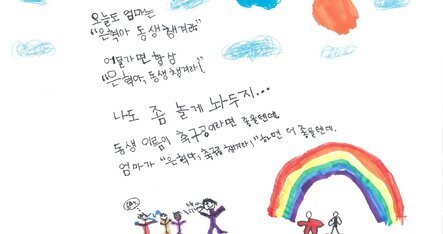 오늘도 엄마는
"은혁아 동생 챙겨라"
어딜가면 항상
"은혁아, 동생챙겨라!"
나도 좀 놀게 놔두지...
동생 이름이 축구공이라면 좋을텐데,
엄마가 "은혁아, 축구공 챙겨라!" 하면 더 좋을텐데.